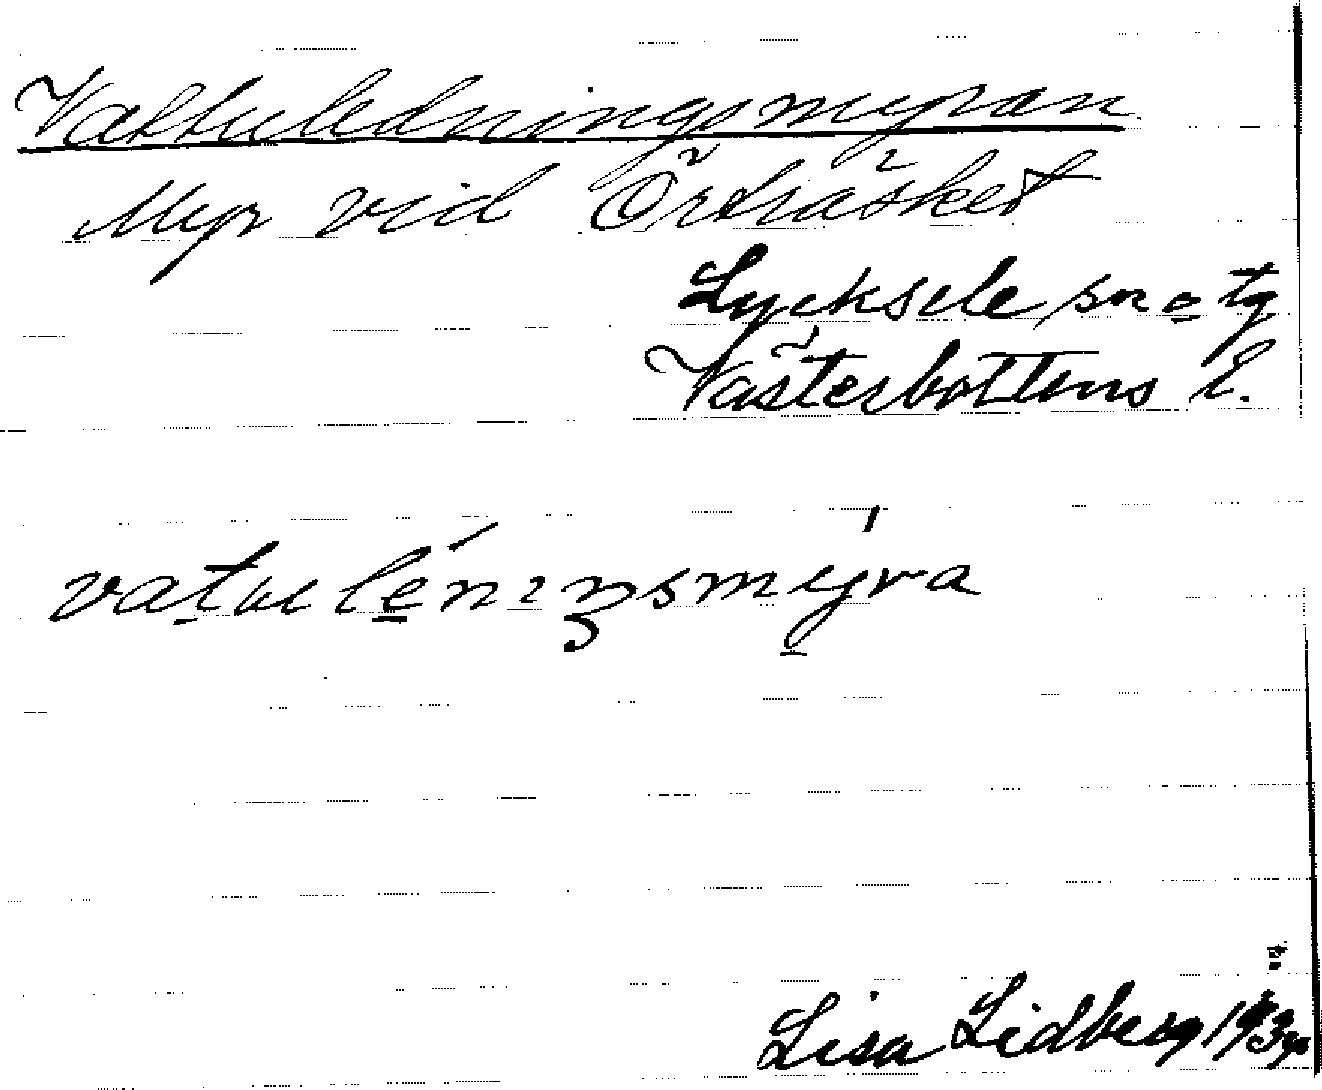 Vattuledningsmyran
Myr vid Örträsket
Lycksele sn o tg
Västerbottens l.
vatulén ıŋsmyra
Lisa Lidberg